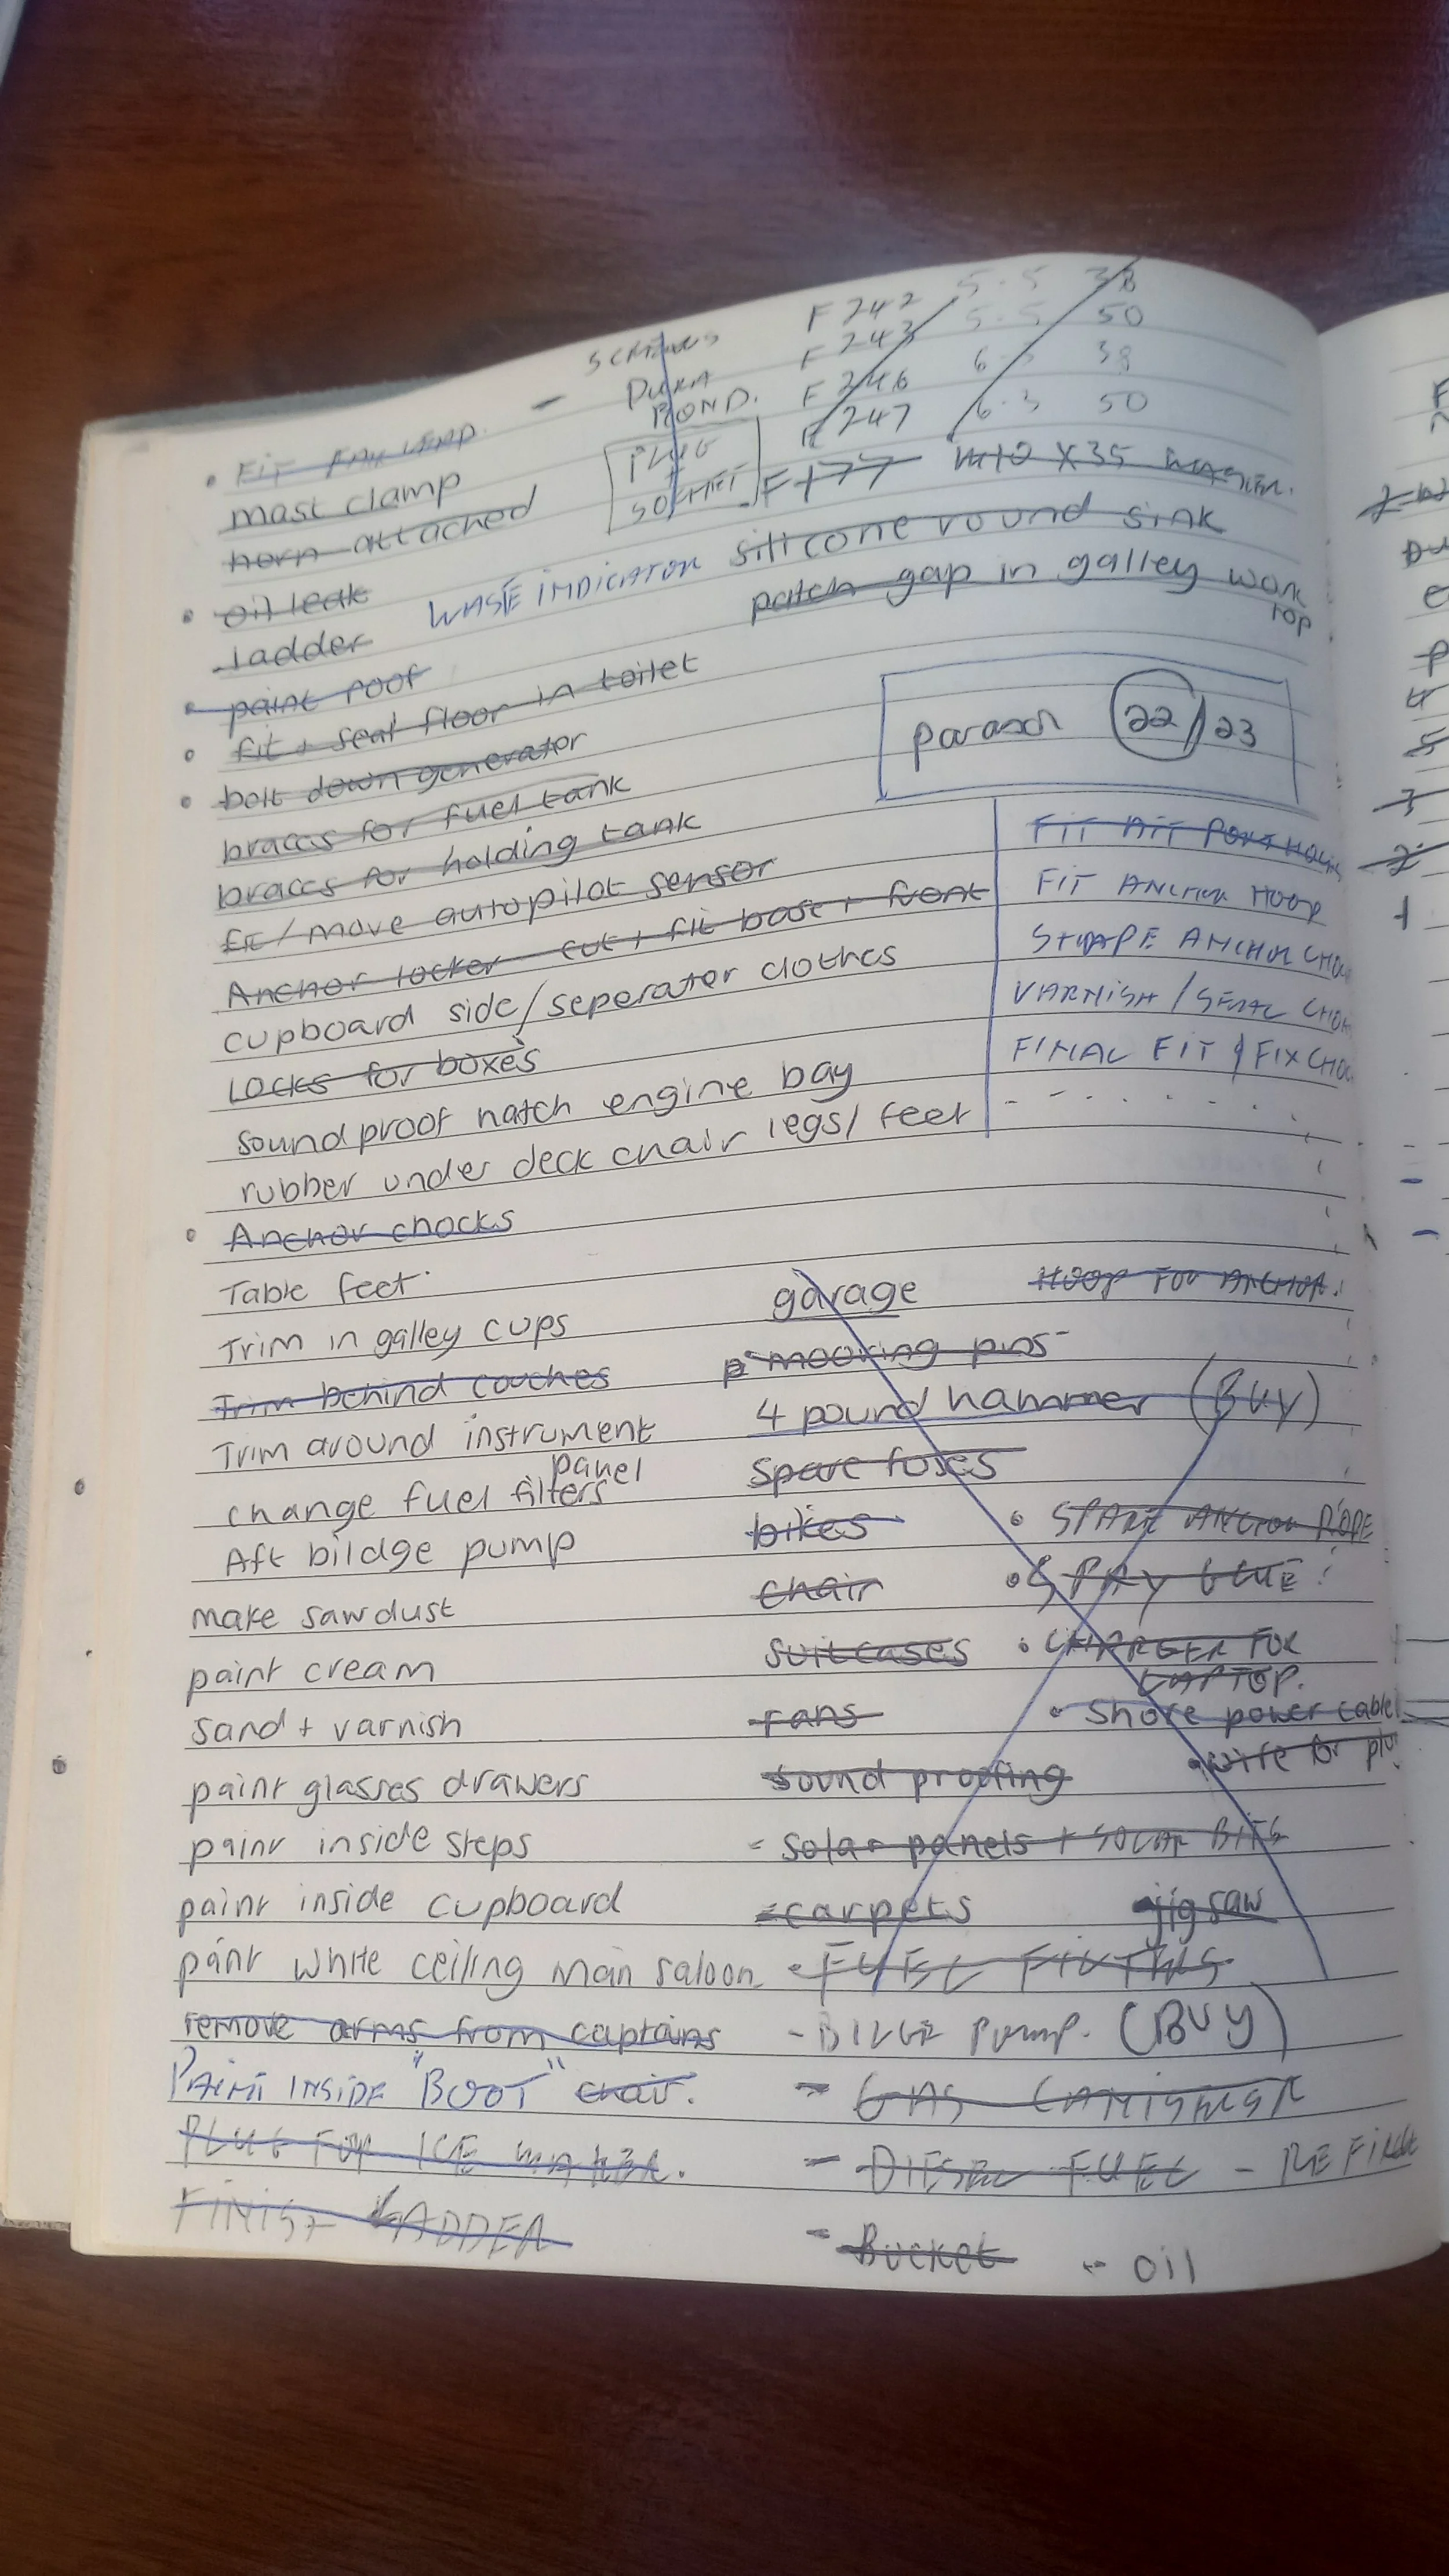 SCREWS F 242 5.5 38
DURA F 243 5.5 50
BOND. F 246 6.3 38
F 247 6.3 50
PLUG
+
SOCKET
F177 M10 X 35
FIT
mast clamp
horn attached
silicone round sink
oil leak
WASTE INDICATOR
patch gap in galley work
top
ladder
paint roof
fit + seal floor in toilet
parasol 22/23
bolt down generator
braces for fuel tank
braces for holding tank
fit/move autopilot sensor
Anchor locker cut + fit base + front
cupboard side/seperator clothes
Locks for boxes
soundproof hatch engine bay
rubber under deck chair legs/feet
FIT AFT PORTHOLES
FIT ANCHOR HOOP
SHAPE ANCHOR CHOC
VARNISH / SEAL CHOC
FINAL FIT & FIX CHOC
Anchor chocks
Table feet
Trim in galley cups
Trim behind couches
Trim around instrument
panel
change fuel filters
Aft bildge pump
make sawdust
paint cream
sand + varnish
paint glasses drawers
paint inside steps
paint inside cupboard
paint white ceiling main saloon
remove arms from captains
PAINT INSIDE "BOOT" chair.
PLUG FOR ICE MAKER.
FINISH LADDER
garage HOOP FOR ANCHOR.
mooring pins
4 pound hammer (BUY)
Spare fuses
bikes
SPARE ANCHOR ROPE
chair
SPRAY GLUE
suitcases
CHARGER FOR
LAPTOP.
fans
Shore power cable
wire for
sound proofing
- solar panels + SOLAR BITS
- carpets jigsaw
FUEL
- BILGE PUMP. (BUY)
- GAS CANISTER
- DIESEL FUEL -
- Bucket - oil